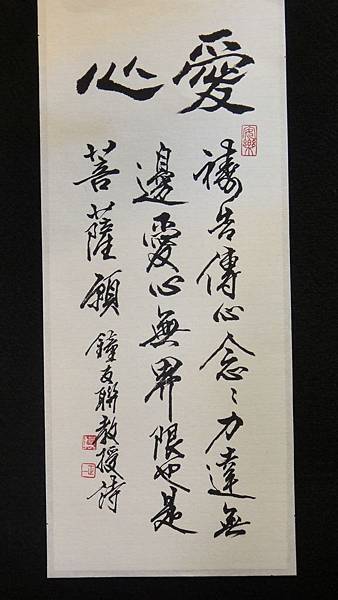 愛心
禱告傳心念〻力達無
邊愛心無界限也是
菩薩願
鐘友聯教授詩